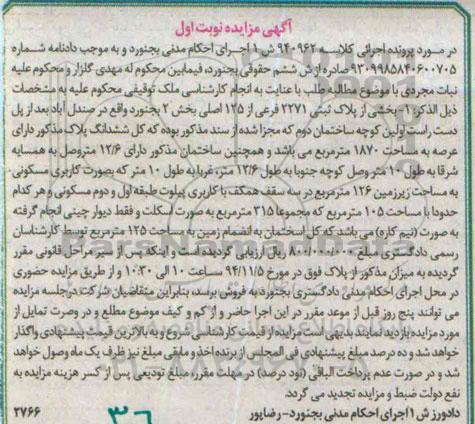 آگهی مزایده نوبت اول
در مورد پرونده اجرائی کلاسه ۹۴۰۹۶۲ ش ۱ اجرای احکام مدنی بجنورد و به موجب دادنامه شماره
۹۳۰۹۹۸۵۸۴۰۶۰۰۷۰۵ صادره از ش ششم حقوقی بجنورد، فیمابین محکوم له مهدی گلزار و محکوم علیه
نبات مجردی با موضوع مطالبه طلب با عنایت به انجام کارشناسی ملک توقیفی محکوم علیه به مشخصات
ذیل الذکر: ۱- بخشی از پلاک ثبتی ۲۲۷۱ فرعی از ۱۲۵ اصلی بخش ۲ بجنورد واقع در صندل آباد بعد از پل
دست راست اولین کوچه ساختمان دوم که مجزا شده از سند مذکور بوده که کل ششدانگ پلاک مذکور دارای
عرصه به مساحت ۱۸۷۰ مترمربع می باشد و همچنین ساختمان مذکور دارای ۱۲/۶ متروصل به همسایه
شرقا به طول ۱۰ متر وصل کوچه جنوبا به طول ۱۲/۶ متر، غربا به طول ۱۰ متر که بصورت کاربری مسکونی
به مساحت زیرزمین ۱۲۶ مترمربع در سه سقف همکف با کاربری پیلوت طبقه اول و دوم مسکونی و هر کدام
حدودا با مساحت ۱۰۵ مترمربع که مجموعا ۳۱۵ مترمربع به صورت اسکلت و فقط دیوار چینی انجام گرفته
به صورت (نیم کاره) می باشد که کل ساختمان به انضمام زمین به مساحت ۱۲۵ مترمربع توسط کارشناسان
رسمی دادگستری مبلغ ۸۰۰/۰۰۰/۰۰۰ ریال ارزیابی گردیده است و اینکه پس از سیر مراحل قانونی مقرر
گردیده به میزان مذکور از پلاک فوق در مورخ ۹۴/۱۱/۵ ساعت ۱۰ الی ۱۰:۳۰ و از طریق مزایده حضوری
در محل اجرای احکام مدنی دادگستری بجنورد به فروش برسد، بنابراین متقاضیان شرکت در جلسه مزایده
می توانند پنج روز قبل از موعد مقرر در این اجرا حاضر و از کم و کیف موضوع مطلع و در وصرت تمایل از
مورد مزایده بازدید نمایند بدیهی است مزایده از قیمت کارشناسی شروع و به بالاترین قیمت پیشنهادی واگذار
خواهد شد و ده درصد مبلغ پیشنهادی فی المجلس از برنده اخذ و مابقی مبلغ نیز ظرف یک ماه وصول خواهد
شد و در صورت عدم پرداخت الباقی (نود درصد) در مهلت مقرر، مبلغ تودیعی پس از کسر هزینه مزایده به
نفع دولت ضبط و مزایده تجدید می گردد.
دادورز ش ۱ اجرای احکام مدنی بجنورد- رضاپور
۲۷۶۶
۳۶
ParsNamadData